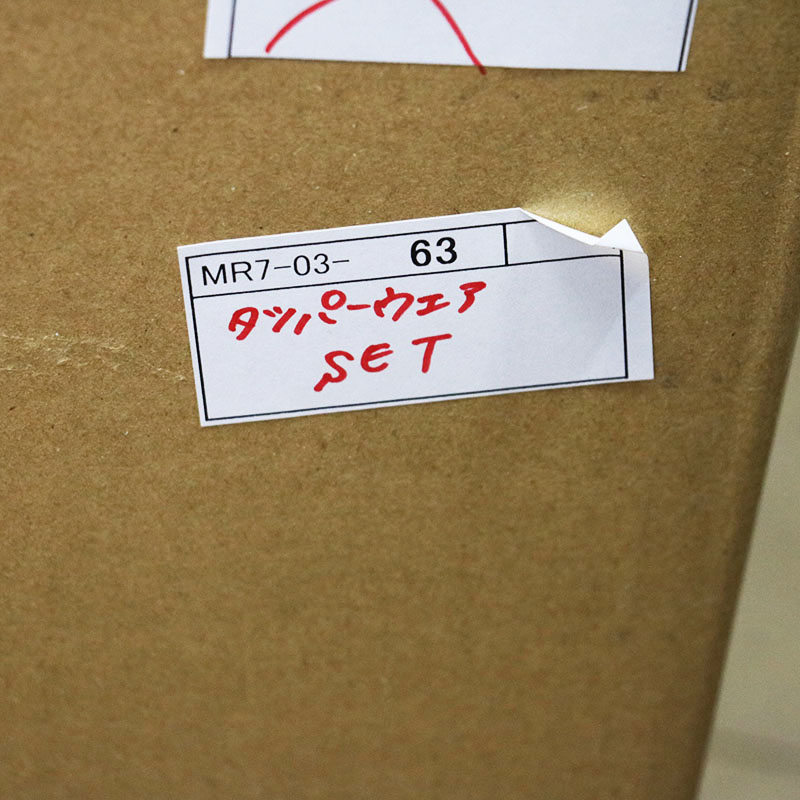 MR7-03- 63
タッパーウェア
SET